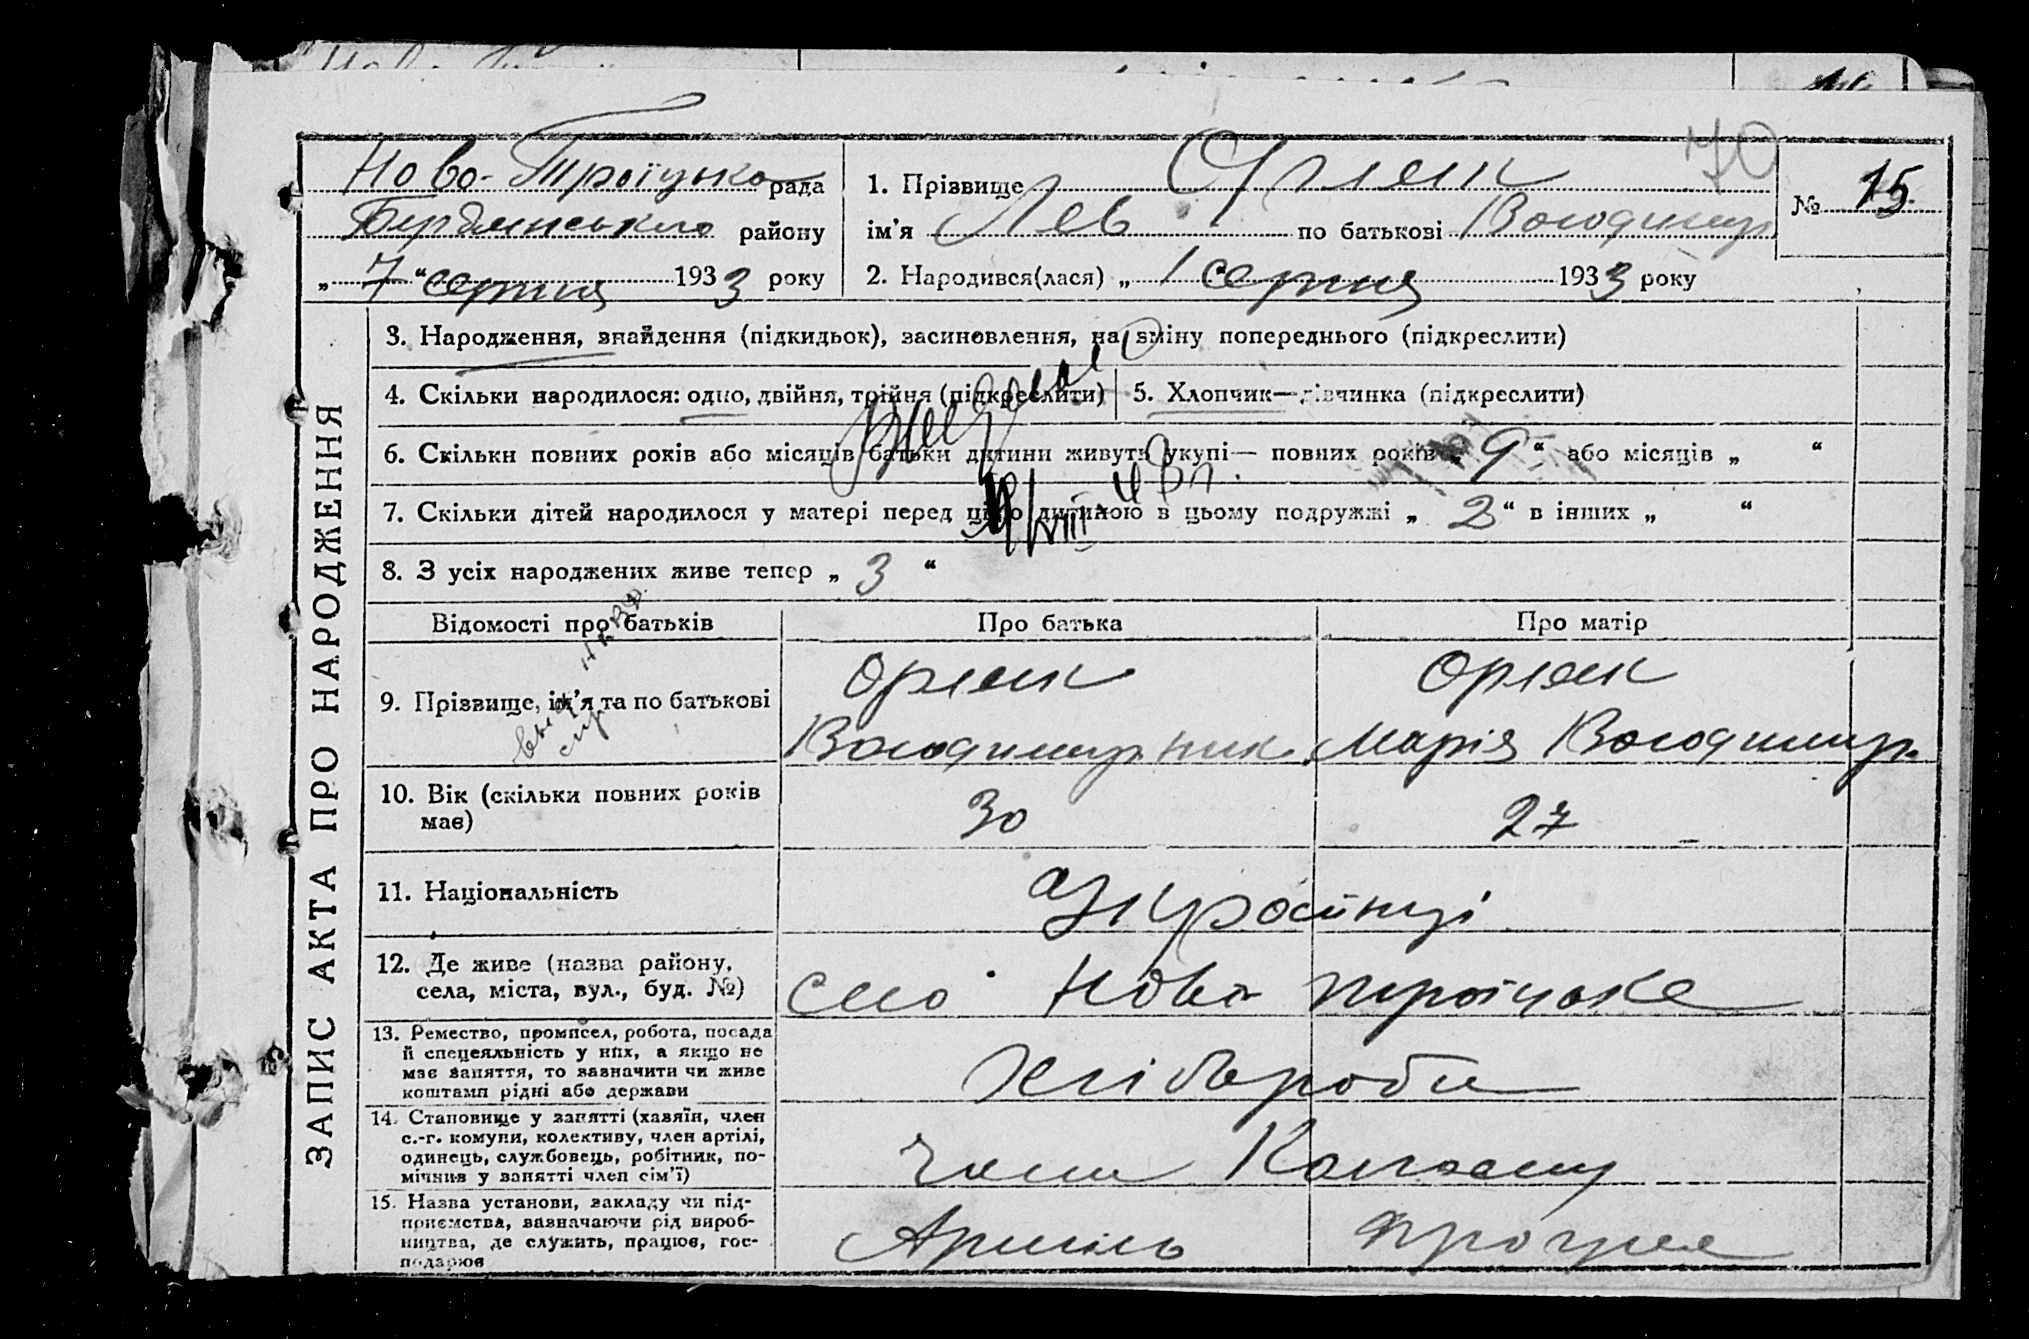 70
Ново-Троїцька рада
Бердянського району
„ 7 “ серпня 1933 року
1. Прізвище Орлик
ім’я Лев по батькові Володимир
2. Народився(лася) „ 1 серпня 1933 року
№ 15
ЗАПИС АКТА ПРО НАРОДЖЕННЯ
3. Народження, знайдення (підкидьок), засиновлення, на зміну попереднього (підкреслити)
4. Скільки народилося: одно, двійня, трійня (підкреслити)
5. Хлопчик—дівчинка (підкреслити)
6. Скільки повних років або місяців батьки дитини живуть укупі— повних років „ 9 “ або місяців „ “
43 г.
7. Скільки дітей народилося у матері перед цією дитиною в цьому подружжі „ 2 “ в інших „ “
VIII
8. З усіх народжених живе тепер „ 3 “
Відомості про батьків
Про батька
Про матір
9. Прізвище, ім’я та по батькові
Орлик
Володимир
Орлик
Марія Володимир.
10. Вік (скільки повних років
має)
30
27
11. Національність
Українці
12. Де живе (назва району,
села, міста, вул., буд. №)
село Ново Троїцьке
13. Ремество, промисел, робота, посада
й спецеяльність у них, а якщо не
має заняття, то зазначити чи живе
коштами рідні або держави
Хлібороби
14. Становище у занятті (хазяїн, член
с.-г. комуни, колективу, член артілі,
одинець, службовець, робітник, по-
мічник у занятті член сім’ї)
члени Колгоспу
15. Назва установи, закладу чи під-
приємства, зазначаючи рід вироб-
ництва, де служить, працює, гос-
подарює
Артіль